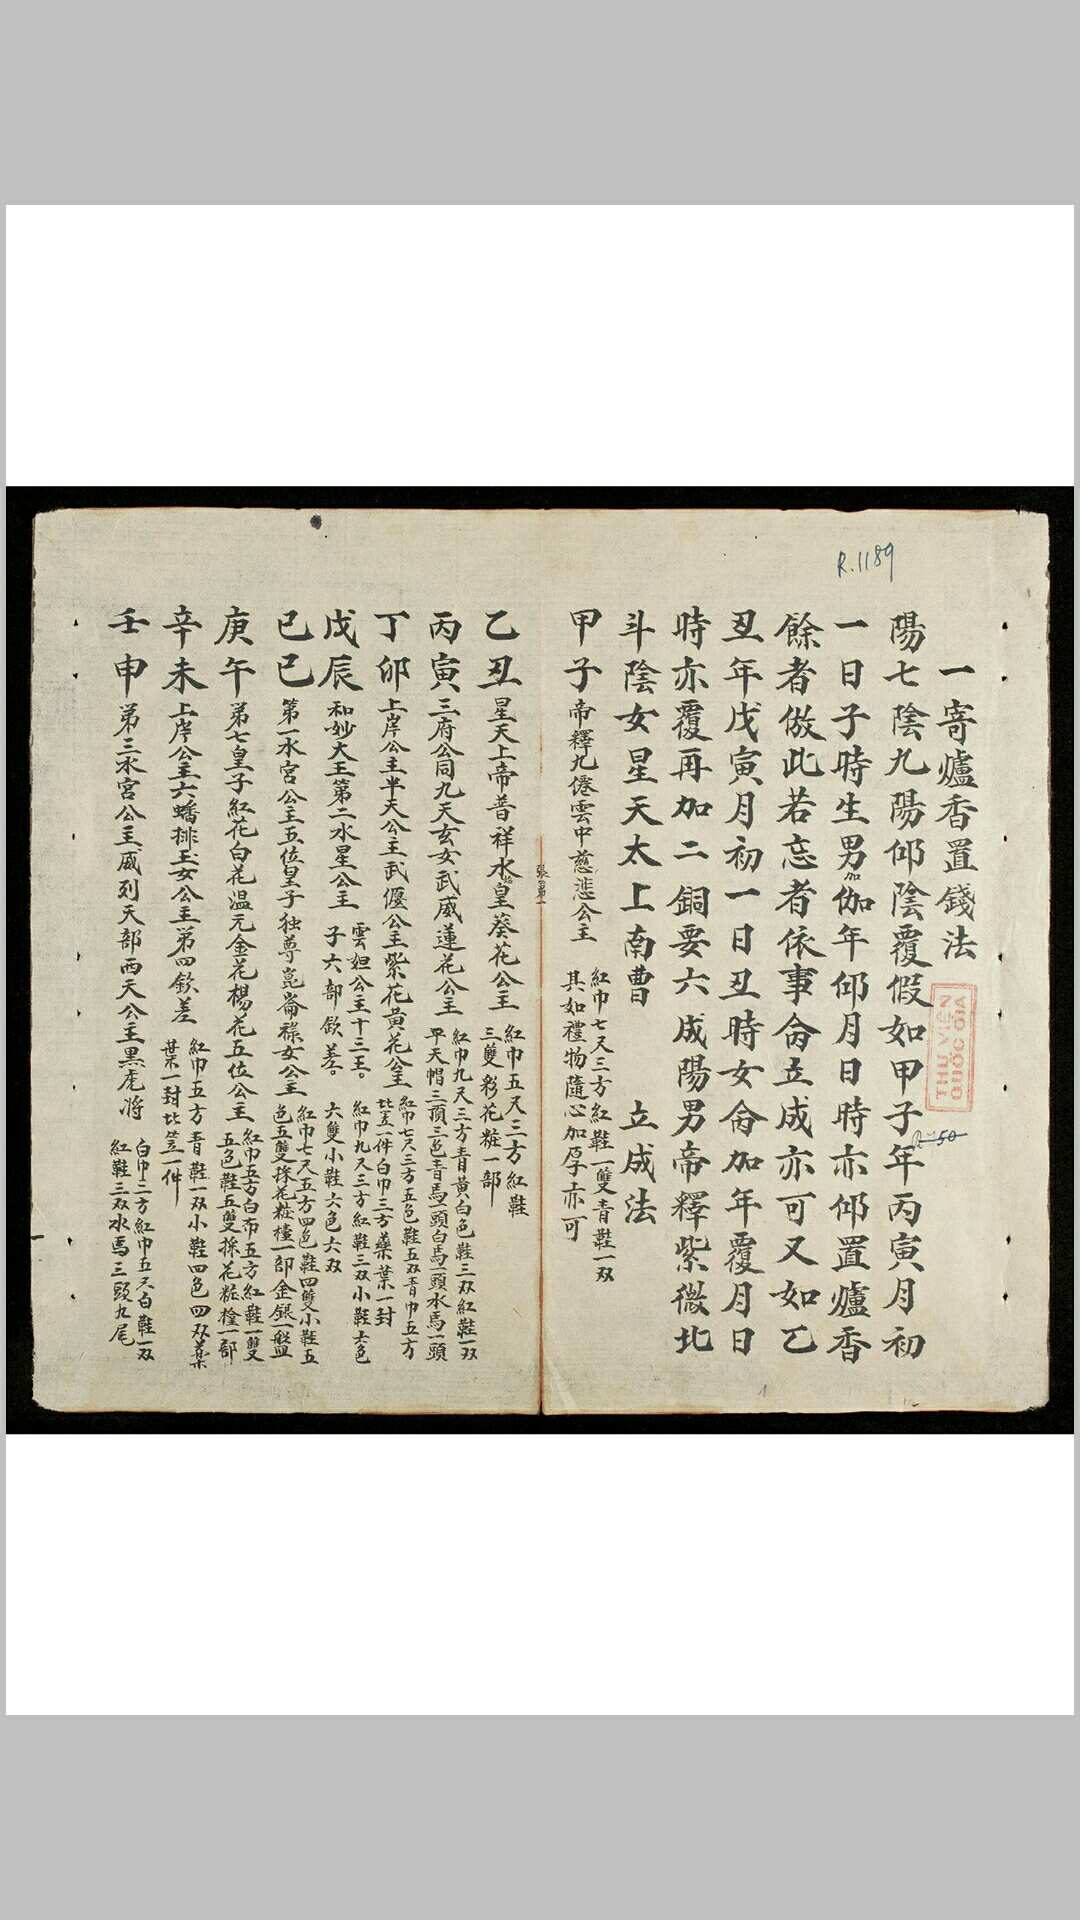 R.1189
一寄爐香置錢法
陽七陰九陽仰陰覆假如甲子年丙寅月初
一日子時生男加伽年仰月日時亦仰置爐香
餘者倣此若忘者依事侖立成亦可又如乙
丑年戊寅月初一日丑時女侖加年覆月日
時亦覆再加二銅要六成陽男帝釋紫微北
斗陰女星天太上南曹 立成法
甲子帝釋九僊雲中慈悲公主 紅巾七尺三方紅鞋一雙青鞋一双
其如禮物隨心加厚亦可
乙丑星天上帝普祥水皇葵花公主 紅巾五尺三方紅鞋
三雙彩花粧一部
丙寅三府公同九天玄女武威蓮花公主 紅巾九尺三方青黃白色鞋三双紅鞋一双
平天帽三頂三色青馬一頭白馬一頭水馬一頭
丁卯上岸公主半天公主武偃公主紫花黃花公主 紅巾七尺三方五色鞋五双青巾五方
比笠一件白巾三方藥葉一封
戊辰和妙大王第二水星公主 雲妲公主十三王。
子六部欽差。 紅巾九尺三方紅鞋三双小鞋六色
六雙小鞋六色六双
己巳第一水宮公主五位皇子独尊崑崙祿女公主 紅巾七尺五方四色鞋四雙小鞋五
色五雙採花粧檯一部金銀一盤
庚午第七皇子紅花白花温元金花楊花五位公主 紅巾五方白布五方紅鞋一雙
五色鞋五雙採花粧檯一部
辛未上岸公主六蟠排玉女公主第四欽差 紅巾五方青鞋一双小鞋四色四双藥
葉一封比笠一件
壬申第三水宮公主威列天部西天公主黑虎将 白巾二方紅巾五尺白鞋一双
紅鞋三双水馬三頭九尾
THƯ VIỆN
QUỐC GIA